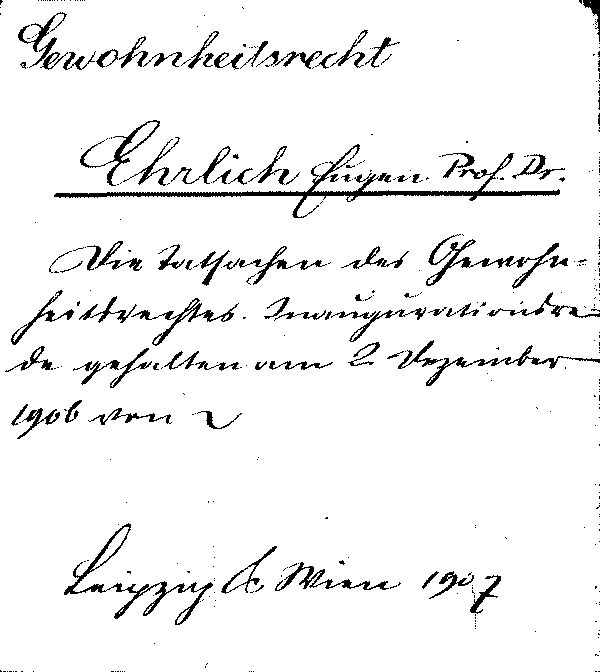 Gewohnheitsrecht
Ehrlich Eugen Prof. Dr.
Die Tatsachen des Gewohn-
heitsrechtes. Inaugurationsre-
de gehalten am 2. Dezember
1906 von
Leipzig & Wien 1907